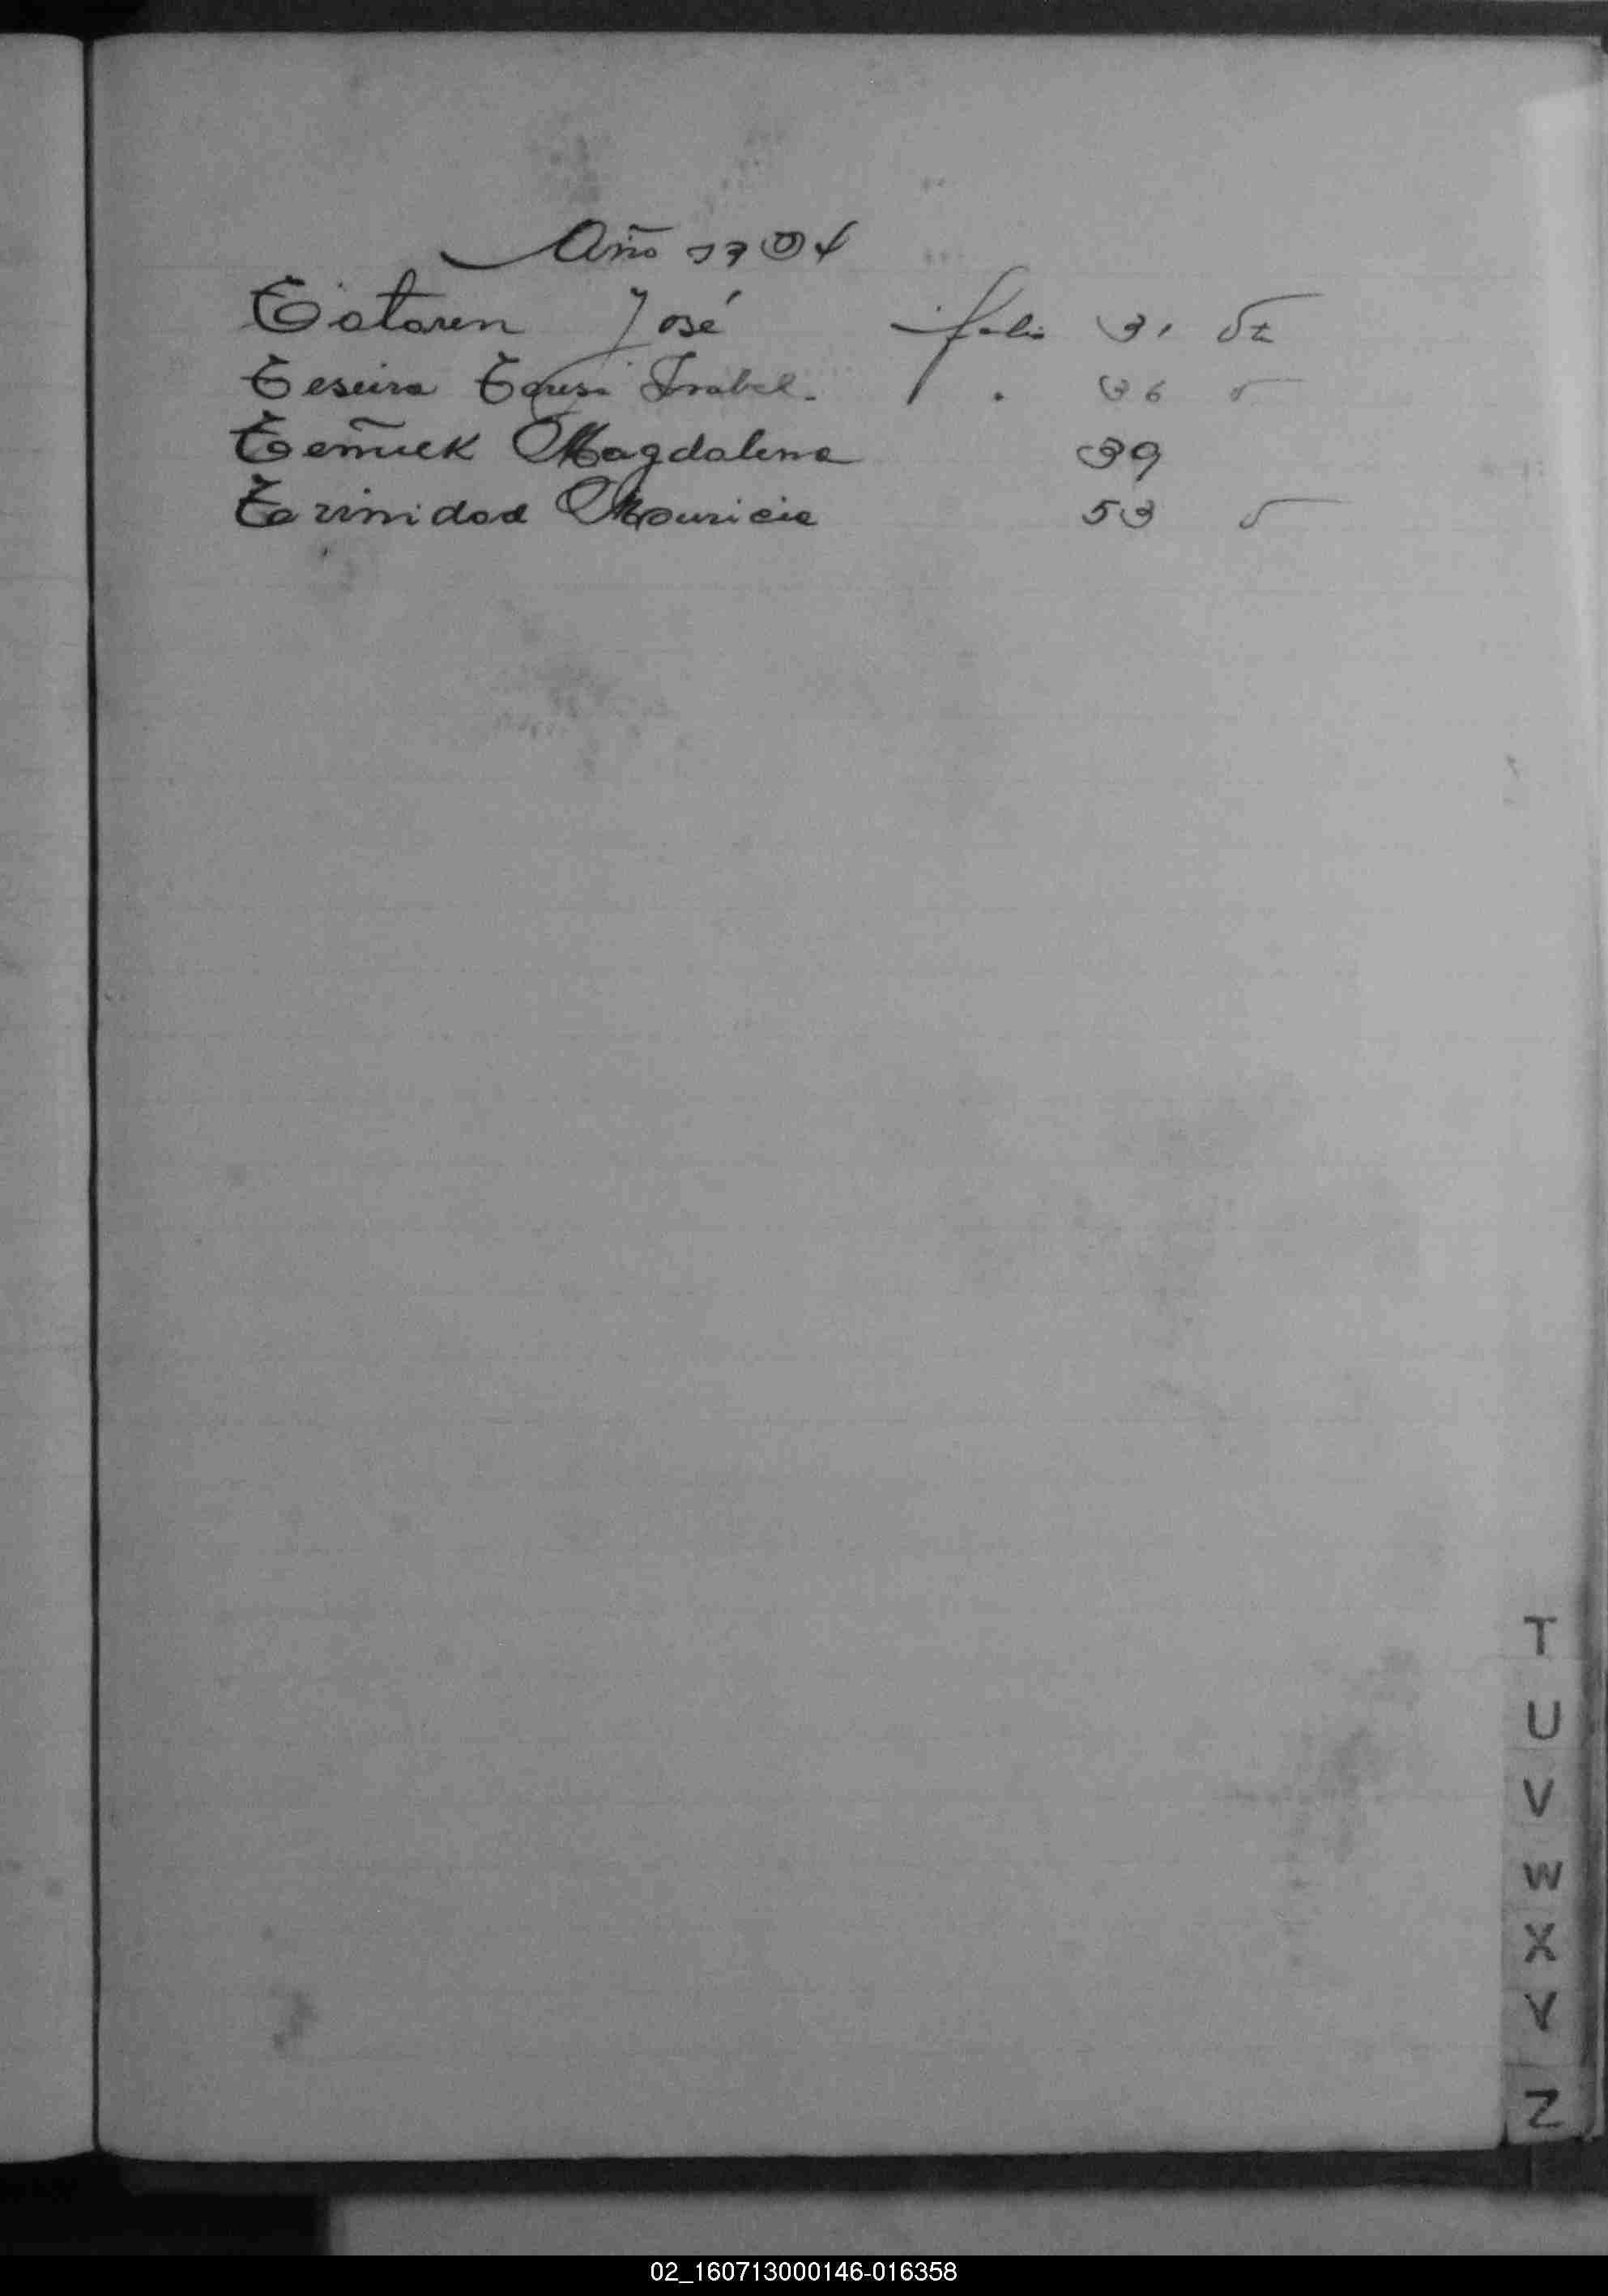 Año 1904
Tataren José folio 31 vta
Teseira Teresa Isabel. " 36 v
Teñuck Magdalena 39
Trinidad Mauricia 53 v
T
U
V
W
X
Y
Z
02_160713000146-016358